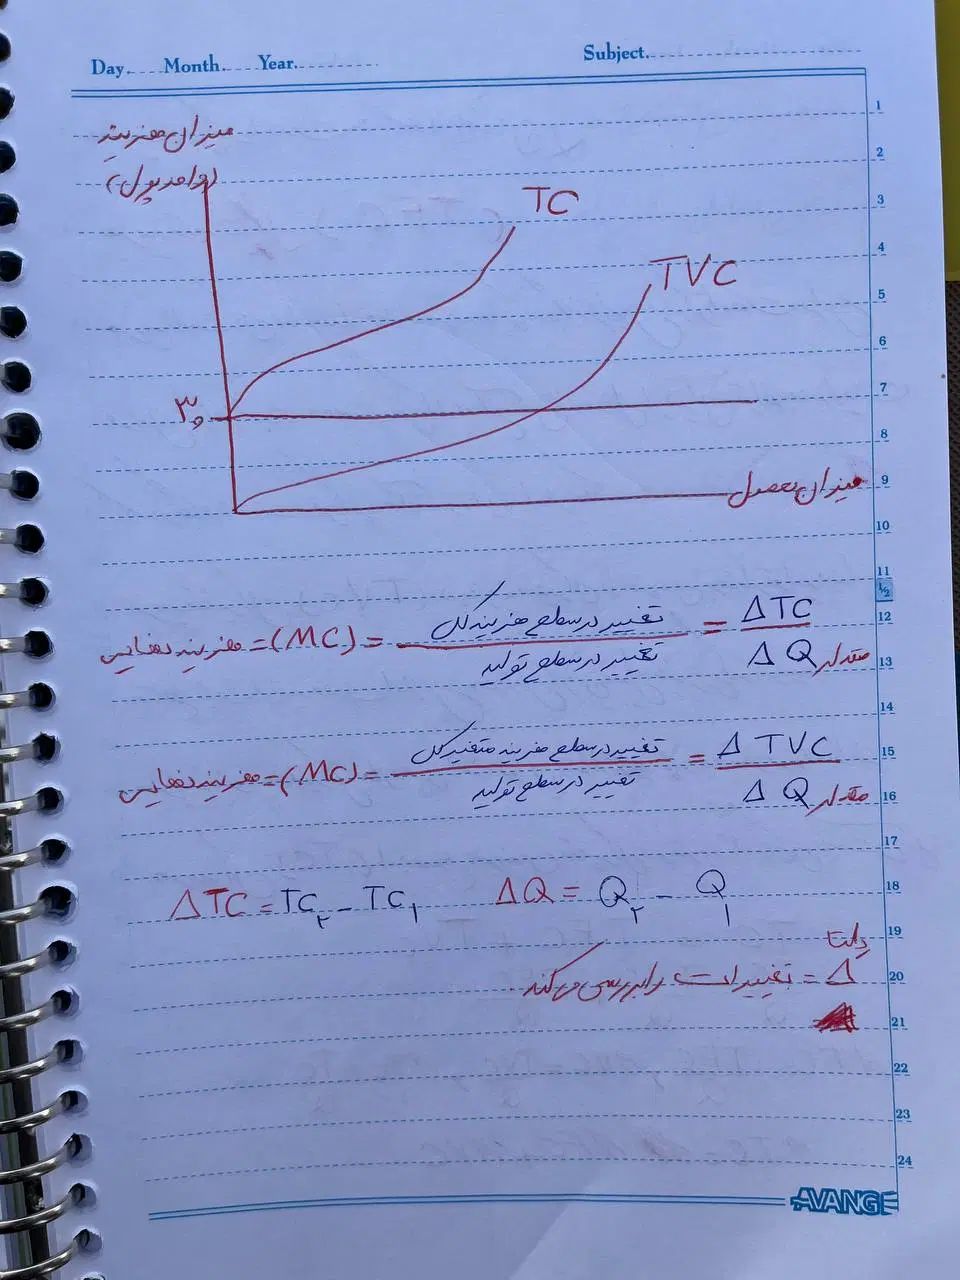 Day. Month. Year. Subject.
میزان هزینه
(واحد پول)
TC
TVC
۳۰
میزان محصول
هزینه نهایی = (MC) = تغییر در سطح هزینه کل / تغییر در سطح تولید = ΔTC / ΔQ مقدار
هزینه نهایی = (MC) = تغییر در سطح هزینه متغیر کل / تغییر در سطح تولید = ΔTVC / ΔQ مقدار
ΔTC = TC₂ - TC₁ ΔQ = Q₂ - Q₁
دلتا
Δ = تغییرات را بررسی می‌کند
1
2
3
4
5
6
7
8
9
10
11
½
12
13
14
15
16
17
18
19
20
21
22
23
24
AVANGE